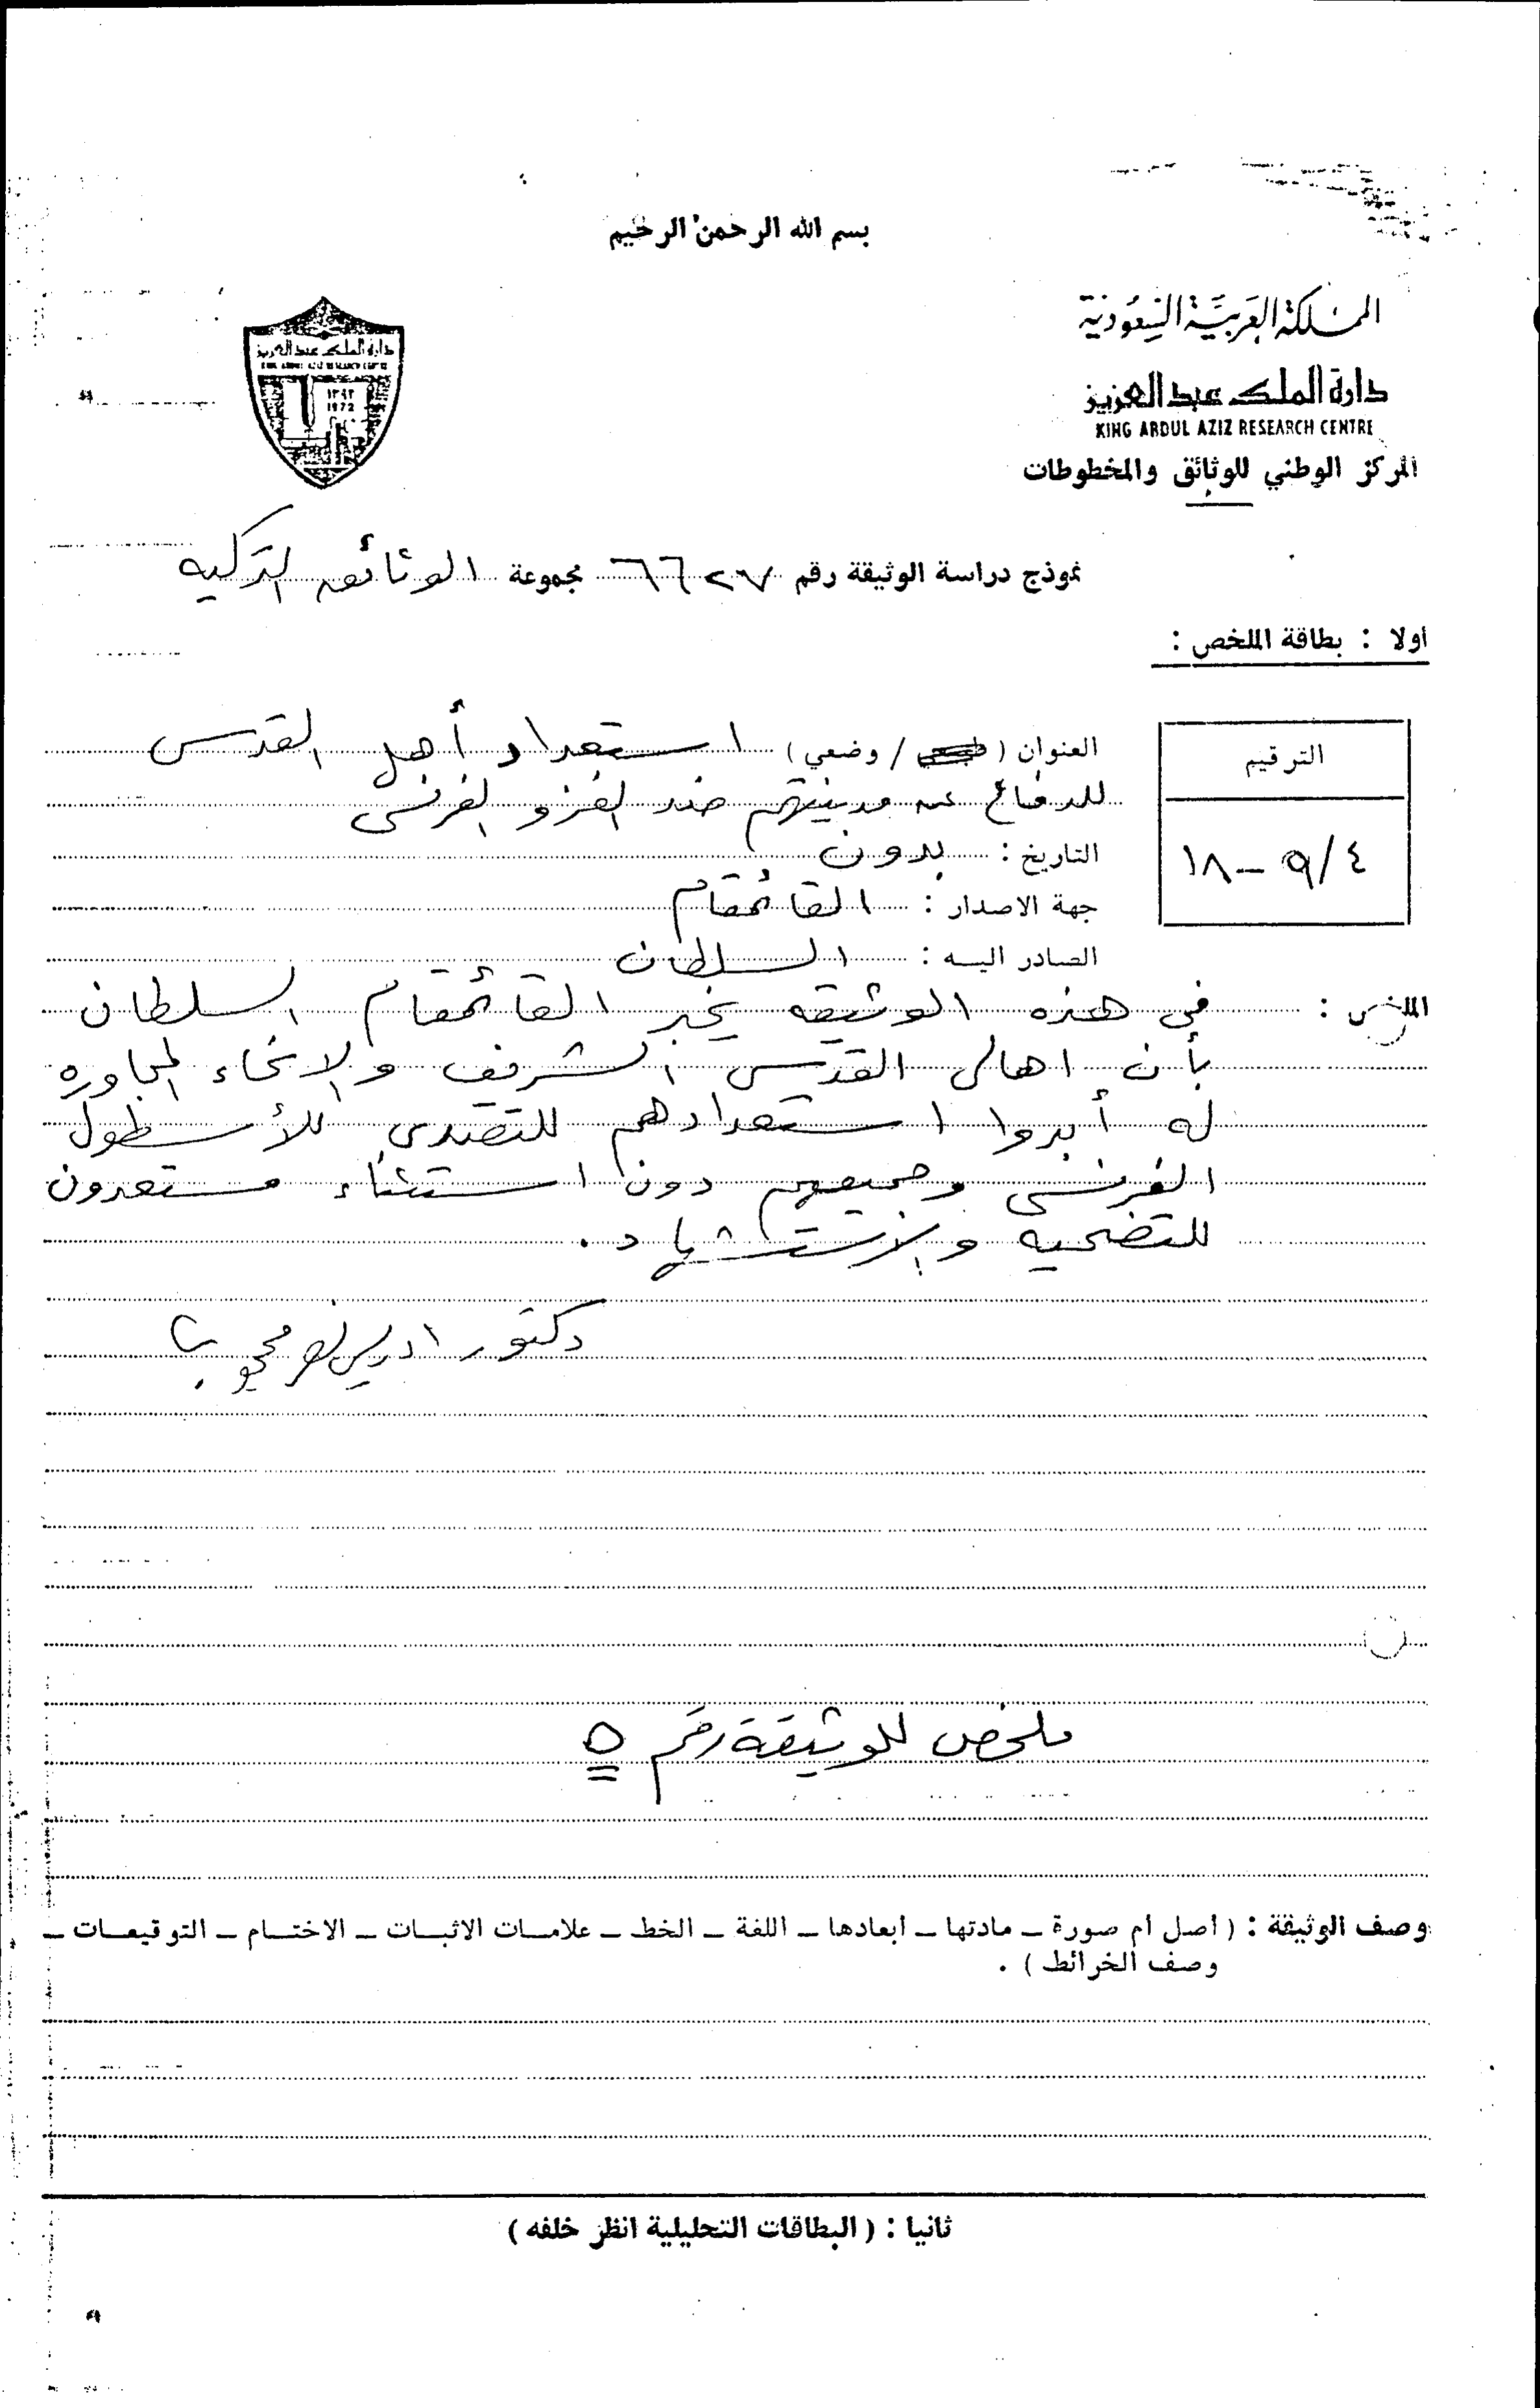 بسم الله الرحمن الرحيم
المملكة العربية السعودية
دارة الملك عبد العزيز
KING ABDUL AZIZ RESEARCH CENTRE
المركز الوطني للوثائق والمخطوطات
دارة الملك عبد العزيز
KING ABDUL AZIZ RESEARCH CENTRE
١٣٩٢
1972
نموذج دراسة الوثيقة رقم ٦٦٢٧ مجموعة الوثائق التركيه
أولا : بطاقة الملخص :
الترقيم
٤/٩ – ١٨
العنوان ( / وضعي ) استعداد أهل القدس
للدفاع عن مدينتهم ضد الغزو الفرنسى
التاريخ : بدون
جهة الاصدار : القائمقام
الصادر اليه : السلطان
الملخص : في هذه الوثيقه يخبر القائمقام السلطان
بأن اهالى القدس الشريف والانحاء المجاوره
له أبدوا استعدادهم للتصدى للأسطول
الفرنسى وجميعهم دون استثناء مستعدون
للتضحيه والاستشهاد .
دكتور ادريس نصر محجوب
ملخص للوثيقة رقم ٥
وصف الوثيقة : ( أصل أم صورة – مادتها – أبعادها – اللغة – الخط – علامات الاثبات – الاختام – التوقيعات –
وصف الخرائط ) .
ثانيا : ( البطاقات التحليلية انظر خلفه )